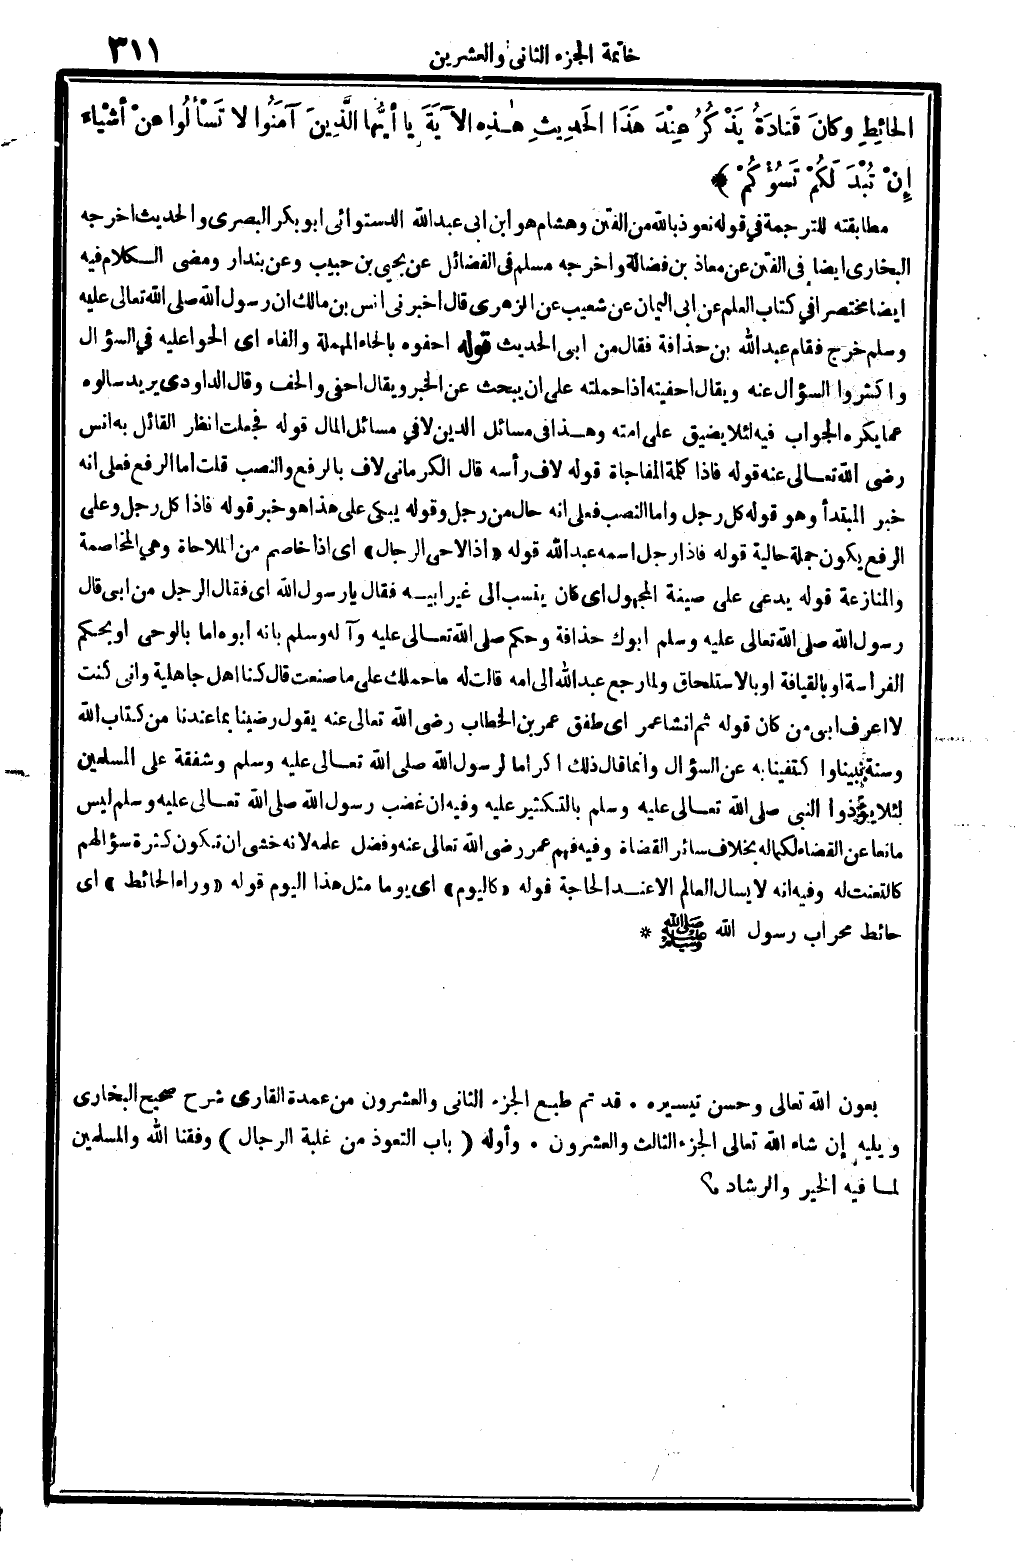 ٣١١
خاتمة الجزء الثانى والعشرين
الحائِطِ وكانَ قَتادَةُ يَذْكُرُ عِنْدَ هَذَا الحَدِيثِ هٰذِهِ الآيَةَ يا أيُّها الَّذِينَ آمَنُوا لا تَسْألُوا عنْ أشْياءَ
إنْ تُبْدَ لَكُمْ تَسُؤْكُمْ ﴾ *
مطابقته للترجمة في قوله نعوذ بالله من الفتن وهشام هو ابن ابى عبدالله الدستوائى ابو بكر البصرى والحديث اخرجه
البخارى ايضا فى الفتن عن معاذ بن فضالة واخرجه مسلم فى الفضائل عن يحيى بن حبيب وعن بندار ومضى الكلام فيه
ايضا مختصرا في كتاب العلم عن ابى اليمان عن شعيب عن الزهرى قال اخبرنى انس بن مالك ان رسول الله صلى الله تعالى عليه
وسلم خرج فقام عبدالله بن حذافة فقال من ابى الحديث قوله احفوه بالحاء المهملة والفاء اى الحوا عليه في السؤال
واكثروا السؤال عنه ويقال احفيته اذا حملته على ان يبحث عن الخبر ويقال احفى والحف وقال الداودى يريد سالوه
عما يكره الجواب فيه لئلا يضيق على امته وهذا فى مسائل الدين لا في مسائل المال قوله فجعلت انظر القائل به انس
رضى الله تعالى عنه قوله فاذا كلمة المفاجاة قوله لاف رأسه قال الكرمانى لاف بالرفع والنصب قلت اما الرفع فعلى انه
خبر المبتدأ وهو قوله كل رجل واما النصب فعلى انه حال من رجل وقوله يبكى على هذا هو خبر قوله فاذا كل رجل وعلى
الرفع يكون جملة حالية قوله فاذا رجل اسمه عبدالله قوله «اذا لاحى الرجال» اى اذا خاصم من الملاحاة وهي المخاصمة
والمنازعة قوله يدعى على صيغة المجهول اى كان ينسب الى غير ابيه فقال يا رسول الله اى فقال الرجل من ابى قال
رسول الله صلى الله تعالى عليه وسلم ابوك حذافة وحكم صلى الله تعالى عليه وآله وسلم بانه ابوه اما بالوحى او بحكم
الفراسة او بالقيافة او بالاستلحاق ولما رجع عبدالله الى امه قالت له ما حملك على ما صنعت قال كنا اهل جاهلية وانى كنت
لا اعرف ابى من كان قوله ثم انشا عمر اى طفق عمر بن الخطاب رضى الله تعالى عنه يقول رضينا بما عندنا من كتاب الله
وسنة نبينا واكتفينا به عن السؤال وانما قال ذلك اكراما لرسول الله صلى الله تعالى عليه وسلم وشفقة على المسلمين
لئلا يؤذوا النبي صلى الله تعالى عليه وسلم بالتكثير عليه وفيه ان غضب رسول الله صلى الله تعالى عليه وسلم ليس
مانعا عن القضاء لكماله بخلاف سائر القضاة وفيه فهم عمر رضى الله تعالى عنه وفضل علمه لانه خشى ان تكون كثرة سؤالهم
كالتعنت له وفيه انه لا يسال العالم الا عند الحاجة قوله «كاليوم» اى يوما مثل هذا اليوم قوله «وراء الحائط» اى
حائط محراب رسول الله ﷺ *
بعون الله تعالى وحسن تيسيره . قد تم طبع الجزء الثانى والعشرون من عمدة القارى شرح صحيح البخارى
ويليه إن شاء الله تعالى الجزء الثالث والعشرون . وأوله ( باب التعوذ من غلبة الرجال ) وفقنا الله والمسلمين
لما فيه الخير والرشاد